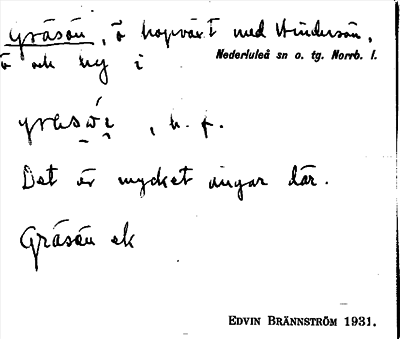 Gräsön, ö hopväxt med Hindersön,
ö och by i
Nederluleå sn o. tg. Norrb. l.
, n. f.
Det är mycket ängar där.
Gräsön ek
EDVIN BRÄNNSTRÖM 1931.